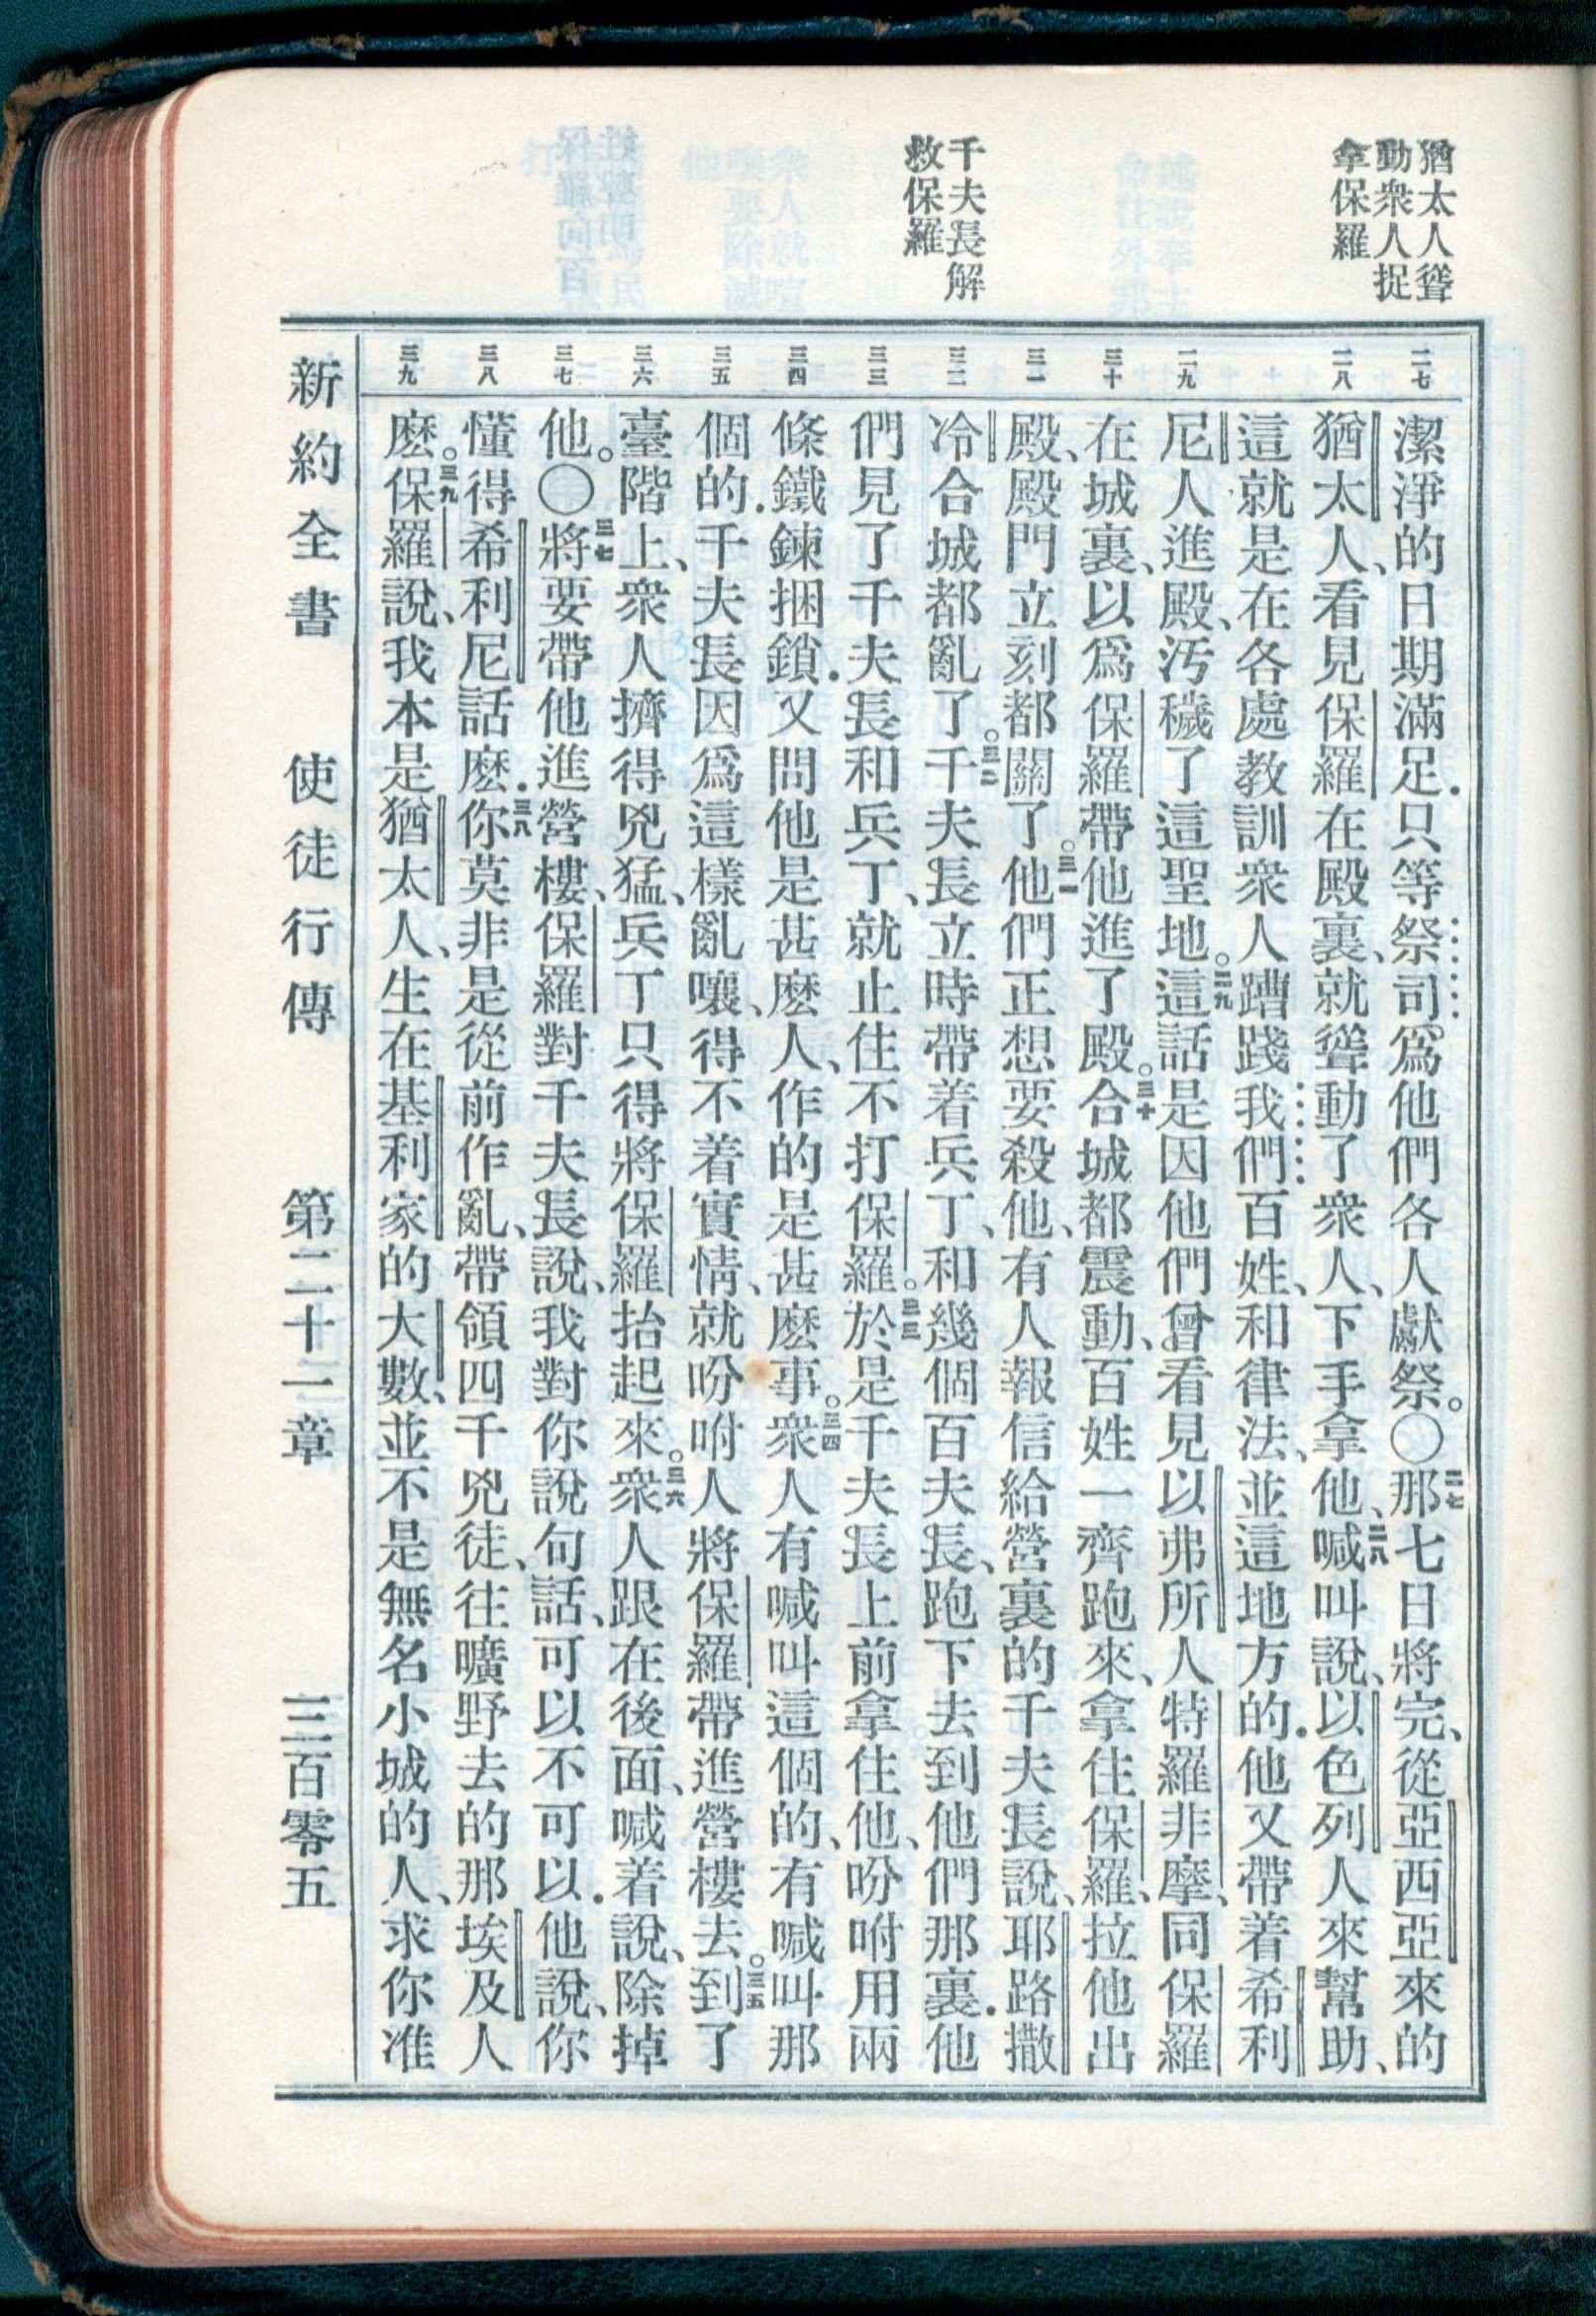 猶太人聳
動衆人捉
拿保羅
千夫長解
救保羅
二七
二八
二九
三十
三一
三二
三三
三四
三五
三六
三七
三八
三九
潔淨的日期滿足．只等祭司爲他們各人獻祭。○二七那七日將完、從亞西亞來的
猶太人、看見保羅在殿裏、就聳動了衆人、下手拿他、二八喊叫說、以色列人來幫助、
這就是在各處教訓衆人蹧踐我們百姓、和律法、並這地方的．他又帶着希利
尼人進殿、汚穢了這聖地。二九這話是因他們曾看見以弗所人特羅非摩、同保羅
在城裏、以爲保羅帶他進了殿。三十合城都震動、百姓一齊跑來、拿住保羅、拉他出
殿、殿門立刻都關了。三一他們正想要殺他、有人報信給營裏的千夫長說、耶路撒
冷合城都亂了。三二千夫長立時帶着兵丁、和幾個百夫長、跑下去到他們那裏．他
們見了千夫長和兵丁、就止住不打保羅。三三於是千夫長上前拿住他、吩咐用兩
條鐵鍊捆鎖．又問他是甚麽人、作的是甚麽事。三四衆人有喊叫這個的、有喊叫那
個的．千夫長因爲這樣亂嚷、得不着實情、就吩咐人將保羅帶進營樓去。三五到了
臺階上、衆人擠得兇猛、兵丁只得將保羅抬起來。三六衆人跟在後面、喊着說、除掉
他。○三七將要帶他進營樓、保羅對千夫長說、我對你說句話、可以不可以．他說、你
懂得希利尼話麽．三八你莫非是從前作亂、帶領四千兇徒、往曠野去的那埃及人
麽。三九保羅說、我本是猶太人、生在基利家的大數、並不是無名小城的人、求你准
新約全書　使徒行傳　第二十一章　三百零五